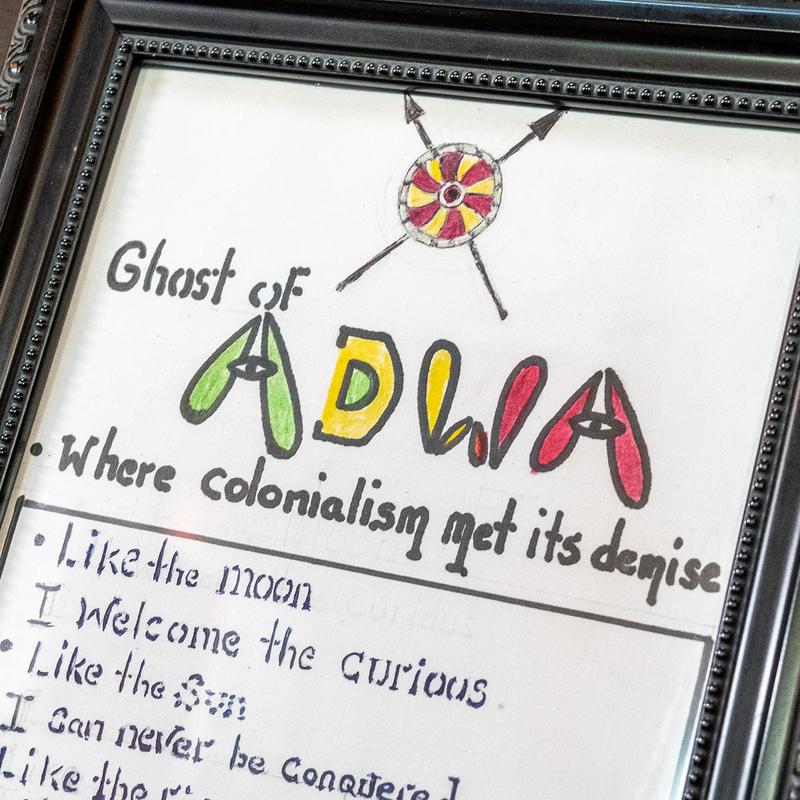 Ghost of
ADWA
• Where colonialism met its demise
• Like the moon
I Welcome the curious
• Like the Sun
I can never be conquered
Like the